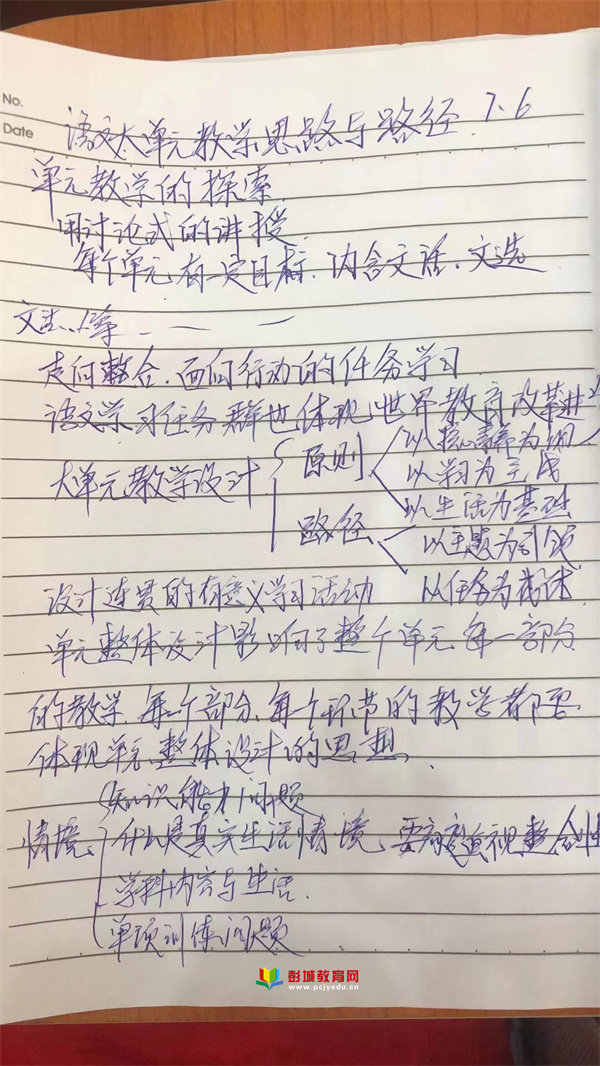 No.
Date
语文大单元教学思路与路径 7.6
单元教学的探索
用讨论式的讲授
每个单元有一定目标.内含文话、文选
走向整合.面向行动的任务学习
语文学习任务群也体现世界教育改革进
大单元教学设计
原则
以核心素养为纲
以学习为主
以生活为基础
路径
以主题为引领
以任务为
设计连贯的有意义学习活动
单元整体设计影响了整个单元每一部分
的教学、每个部分、每个环节的教学都要
体现单元整体设计的思想
情境
知识能力问题
什么是真实生活情境、要高度重视整合
学科内容与生活
单项训练问题
彭城教育网
www.pcjyedu.cn